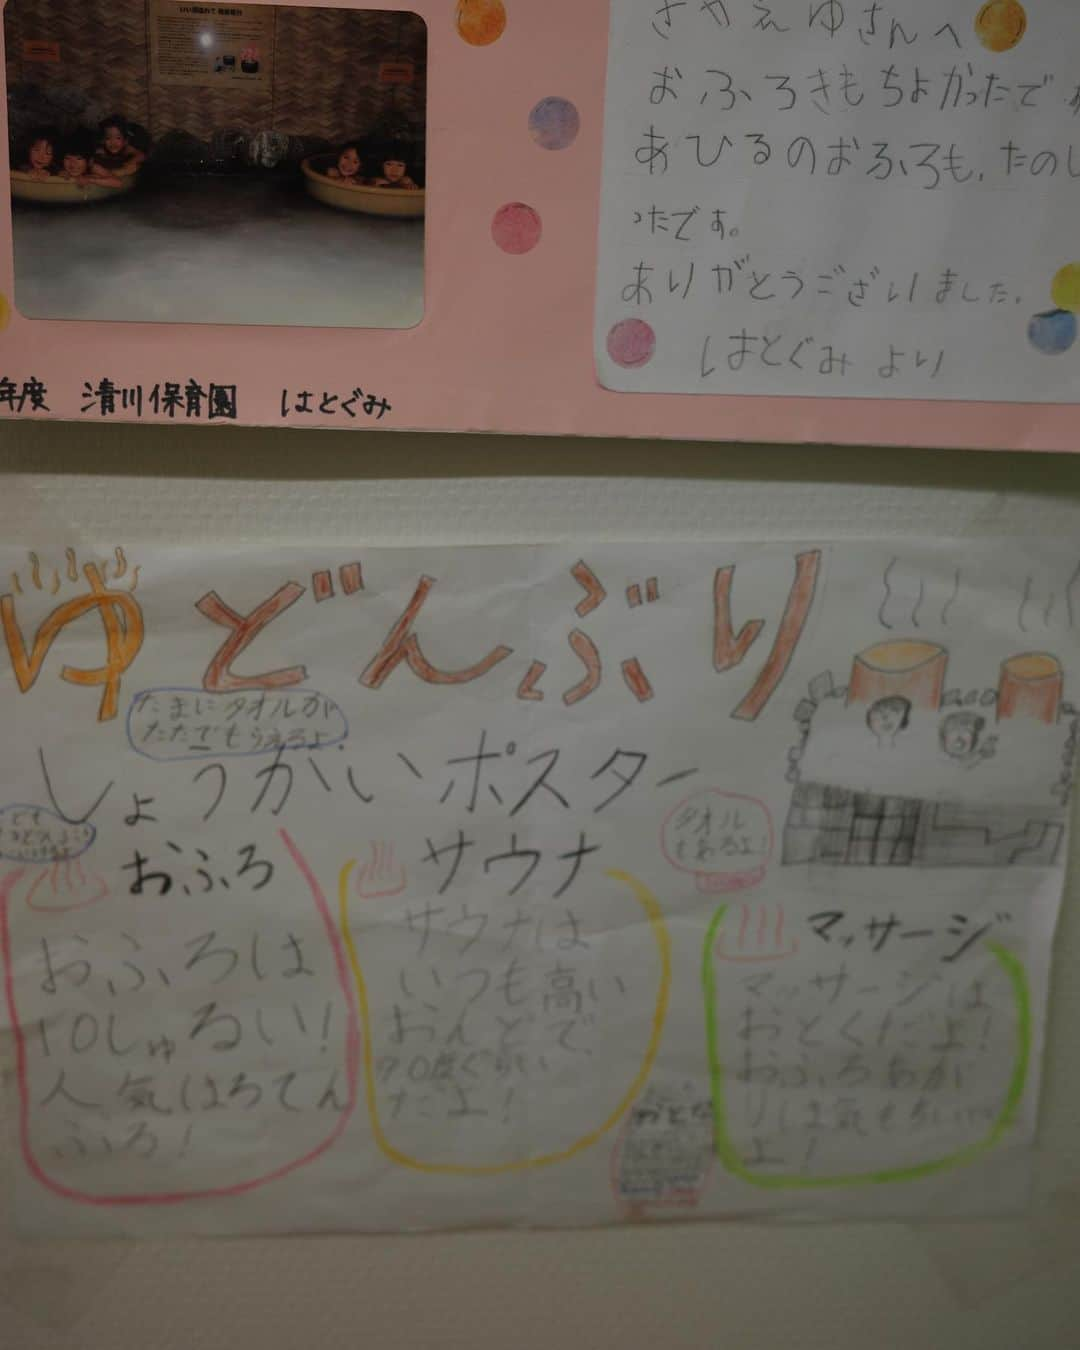 さやえゆさんへ
おふろきもちよかったで
あひるのおふろも、たのし
ったです。
ありがとうございました。
はとぐみ より
年度 清川保育園 はとぐみ
ゆどんぶり
たまにタオルが
ただでもらえるよ!
しょうかいポスター
タオル
もあるよ!
おふろ
おふろは
10しゅるい!
人気はろてん
ふろ!
サウナ
サウナは
いつも高い
おんどで、
90度ぐらい
だよ!
マッサージ
マッサージは
おとくだよ!
おふろあが
りしま気もちいい
よ!